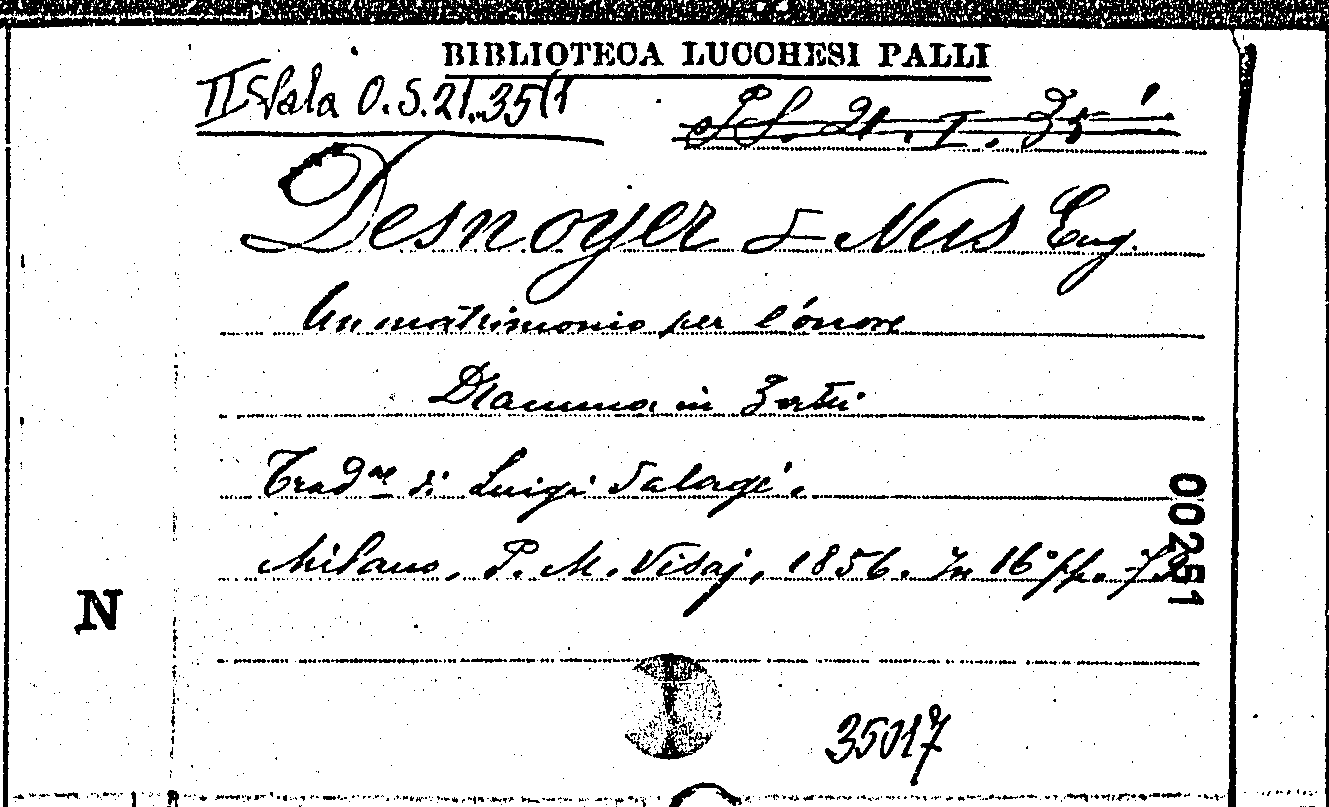 BIBLIOTECA LUCCHESI PALLI
II Sala O.S.21.35/1
21. I. 35
Desnoyer & Nus Eug.
Un matrimonio per l'onore
Dramma in 3 atti
Trad.ne di Luigi
Milano, P. M. Visaj, 1856. In 16° pp. 72
00251
N
35017